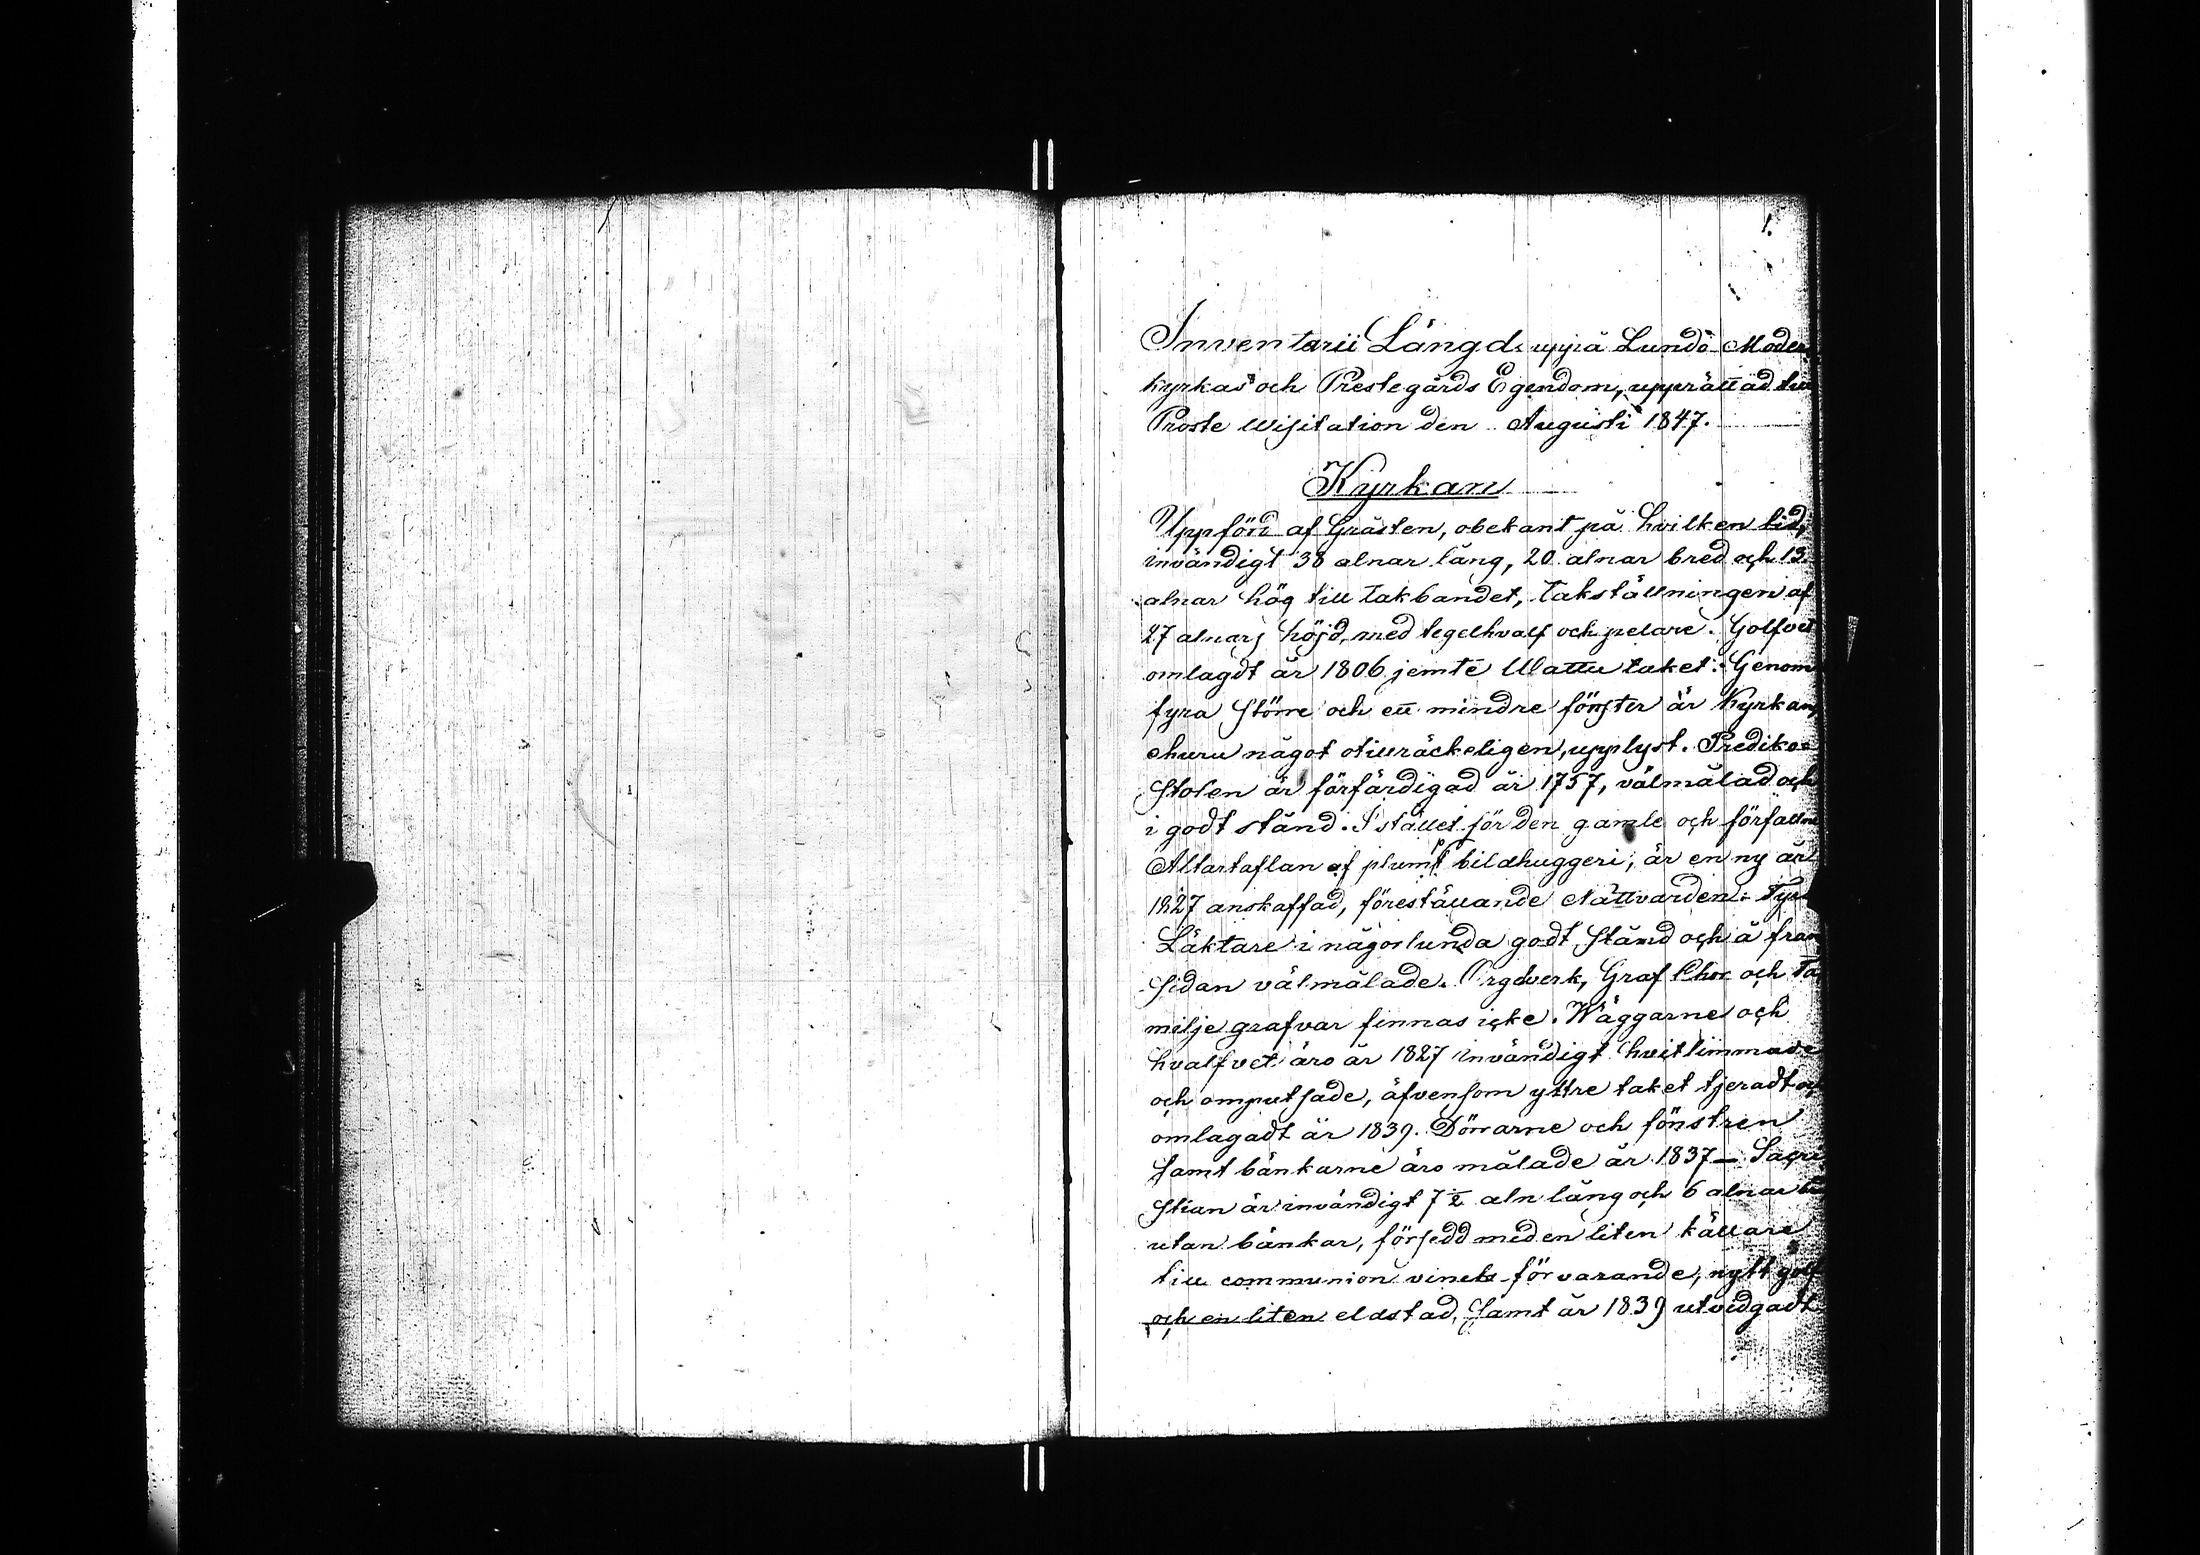 1.
Inventarii Längd uppå Lundo Moder
kyrkas och Prestegårds Egendom, upprättad till
Proste Wisitation den Augusti 1847.
Kyrkan
Uppförd af Gråsten, obekant på hvilken tid,
invändigt 38 alnar lång, 20 alnar bred och 13
alnar hög till takbandet, takställningen af
27 alnars höjd, med tegelhvalf och pelare. Golfvet
omlagdt år 1806 jemte Wattutaket. Genom
fyra större och ett mindre fönster är Kyrkan,
ehuru något otillräckeligen, upplyst. Prediko-
stolen är förfärdigad år 1757, välmålad och
i godt stånd. I stället för den gamle och förfallne
Altartaflan af plumt bildhuggeri, är en ny år
1827 anskaffad, föreställande Nattvarden.
Läktare i någorlunda godt stånd och å fram
sidan välmålade. Orgelverk, Graf Chor och Fa
milje grafvar finnas icke. Wäggarne och
hvalfvet äro år 1827 invändigt hvitlimmade
och omputsade, äfvensom yttre taket tjeradt och
omlagadt år 1839. Dörrarne och fönstren
samt bänkarne äro målade år 1837 – Sacri
stian är invändigt 7½ aln lång och 6 alnar
utan bänkar, försedd med en liten källare
till communion vinets förvarande, nytt golf
och en liten eldstad, samt år 1839 utvidgadt